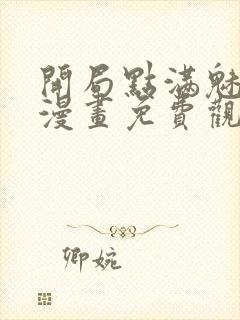 開局點滿魅
漫畫免費觀
卿婉